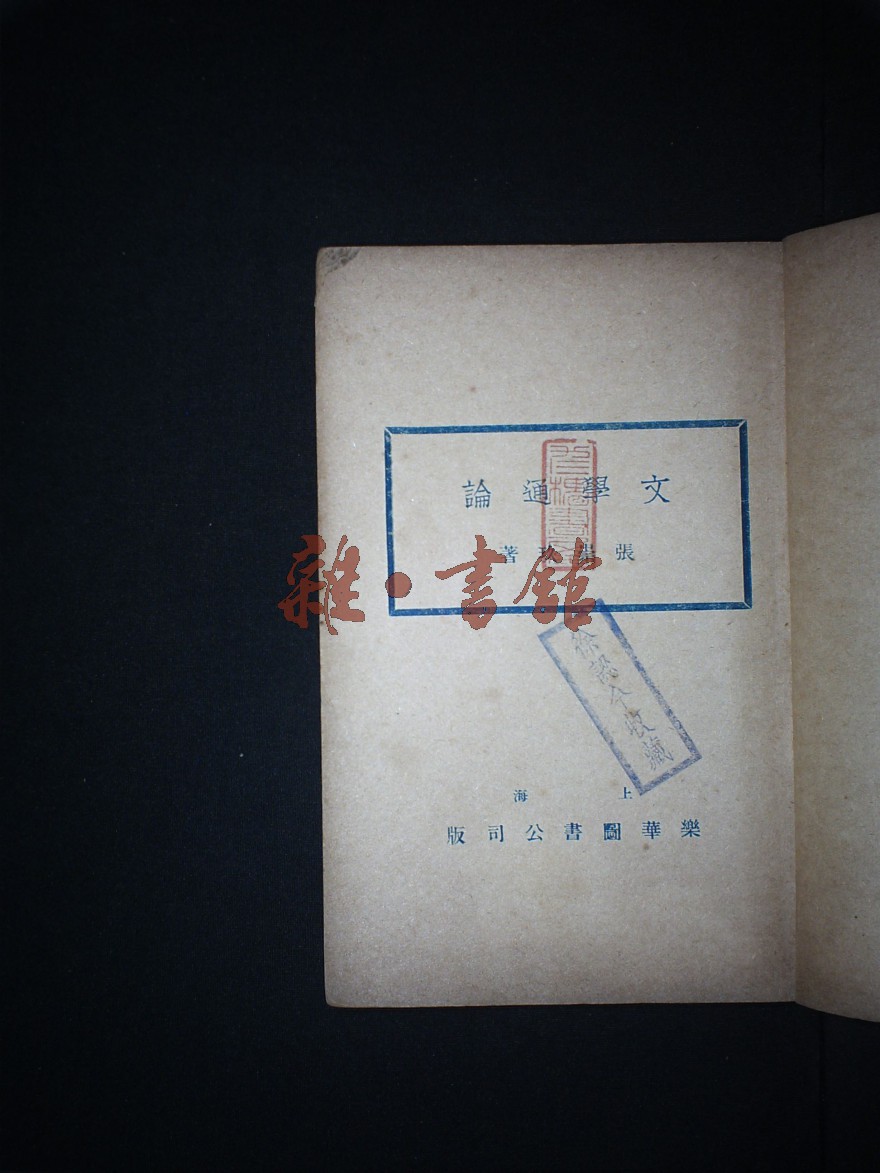 文學通論
張崇玖著
雜·書館
徐認今收藏
上海
樂華圖書公司版